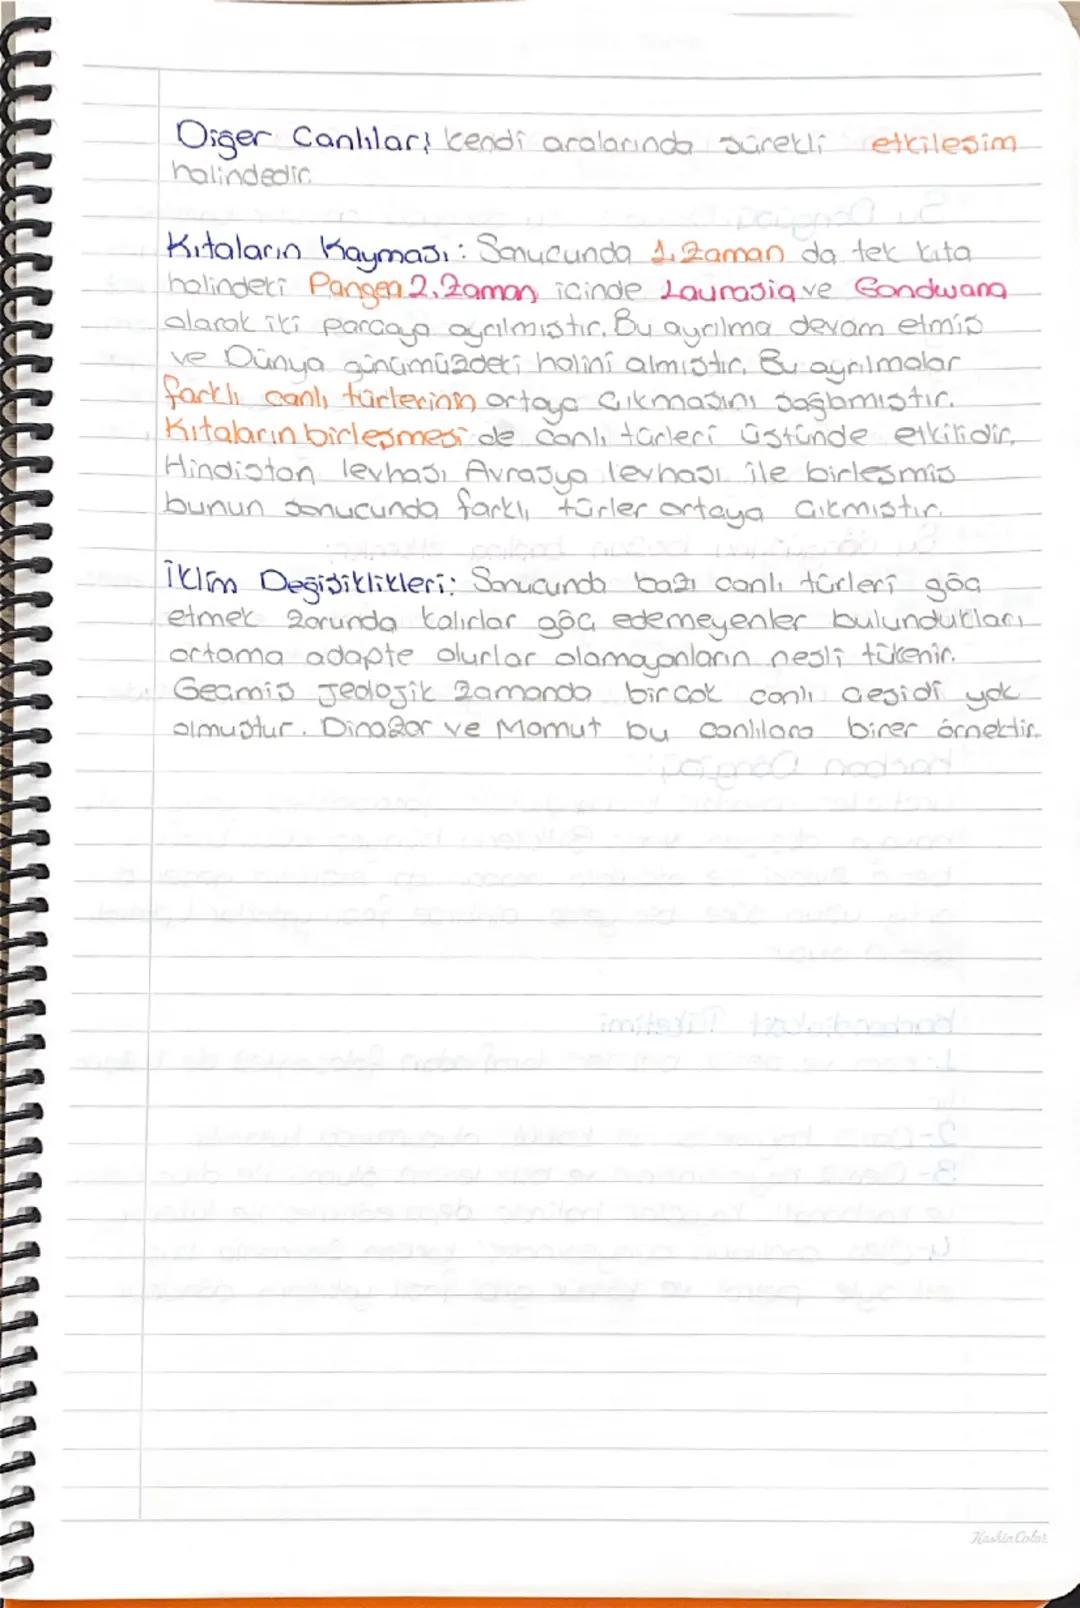 Diğer Canlılar: Kendi aralarında sürekli etkileşim
halindedir.
Kıtaların Kayması: Sonucunda 1.Zaman da tek kıta
halindeki Pangea 2.Zaman içinde Laurasia ve Gondwana
olarak iki parçaya ayrılmıştır. Bu ayrılma devam etmiş
ve Dünya günümüzdeki halini almıştır. Bu ayrılmalar
farklı canlı türlerinin ortaya çıkmasını sağlamıştır.
Kıtaların birleşmesi de canlı türleri üstünde etkilidir.
Hindistan levhası Avrasya levhası ile birleşmiş
bunun sonucunda farklı türler ortaya çıkmıştır.
İklim Değişiklikleri: Sonucunda bazı canlı türleri göç
etmek zorunda kalırlar göç edemeyenler bulundukları
ortama adapte olurlar olamayanların nesli tükenir.
Geçmiş jeolojik zamanda birçok canlı çeşidi yok
olmuştur. Dinazor ve Mamut bu canlılara birer örnektir.
Keskin Color